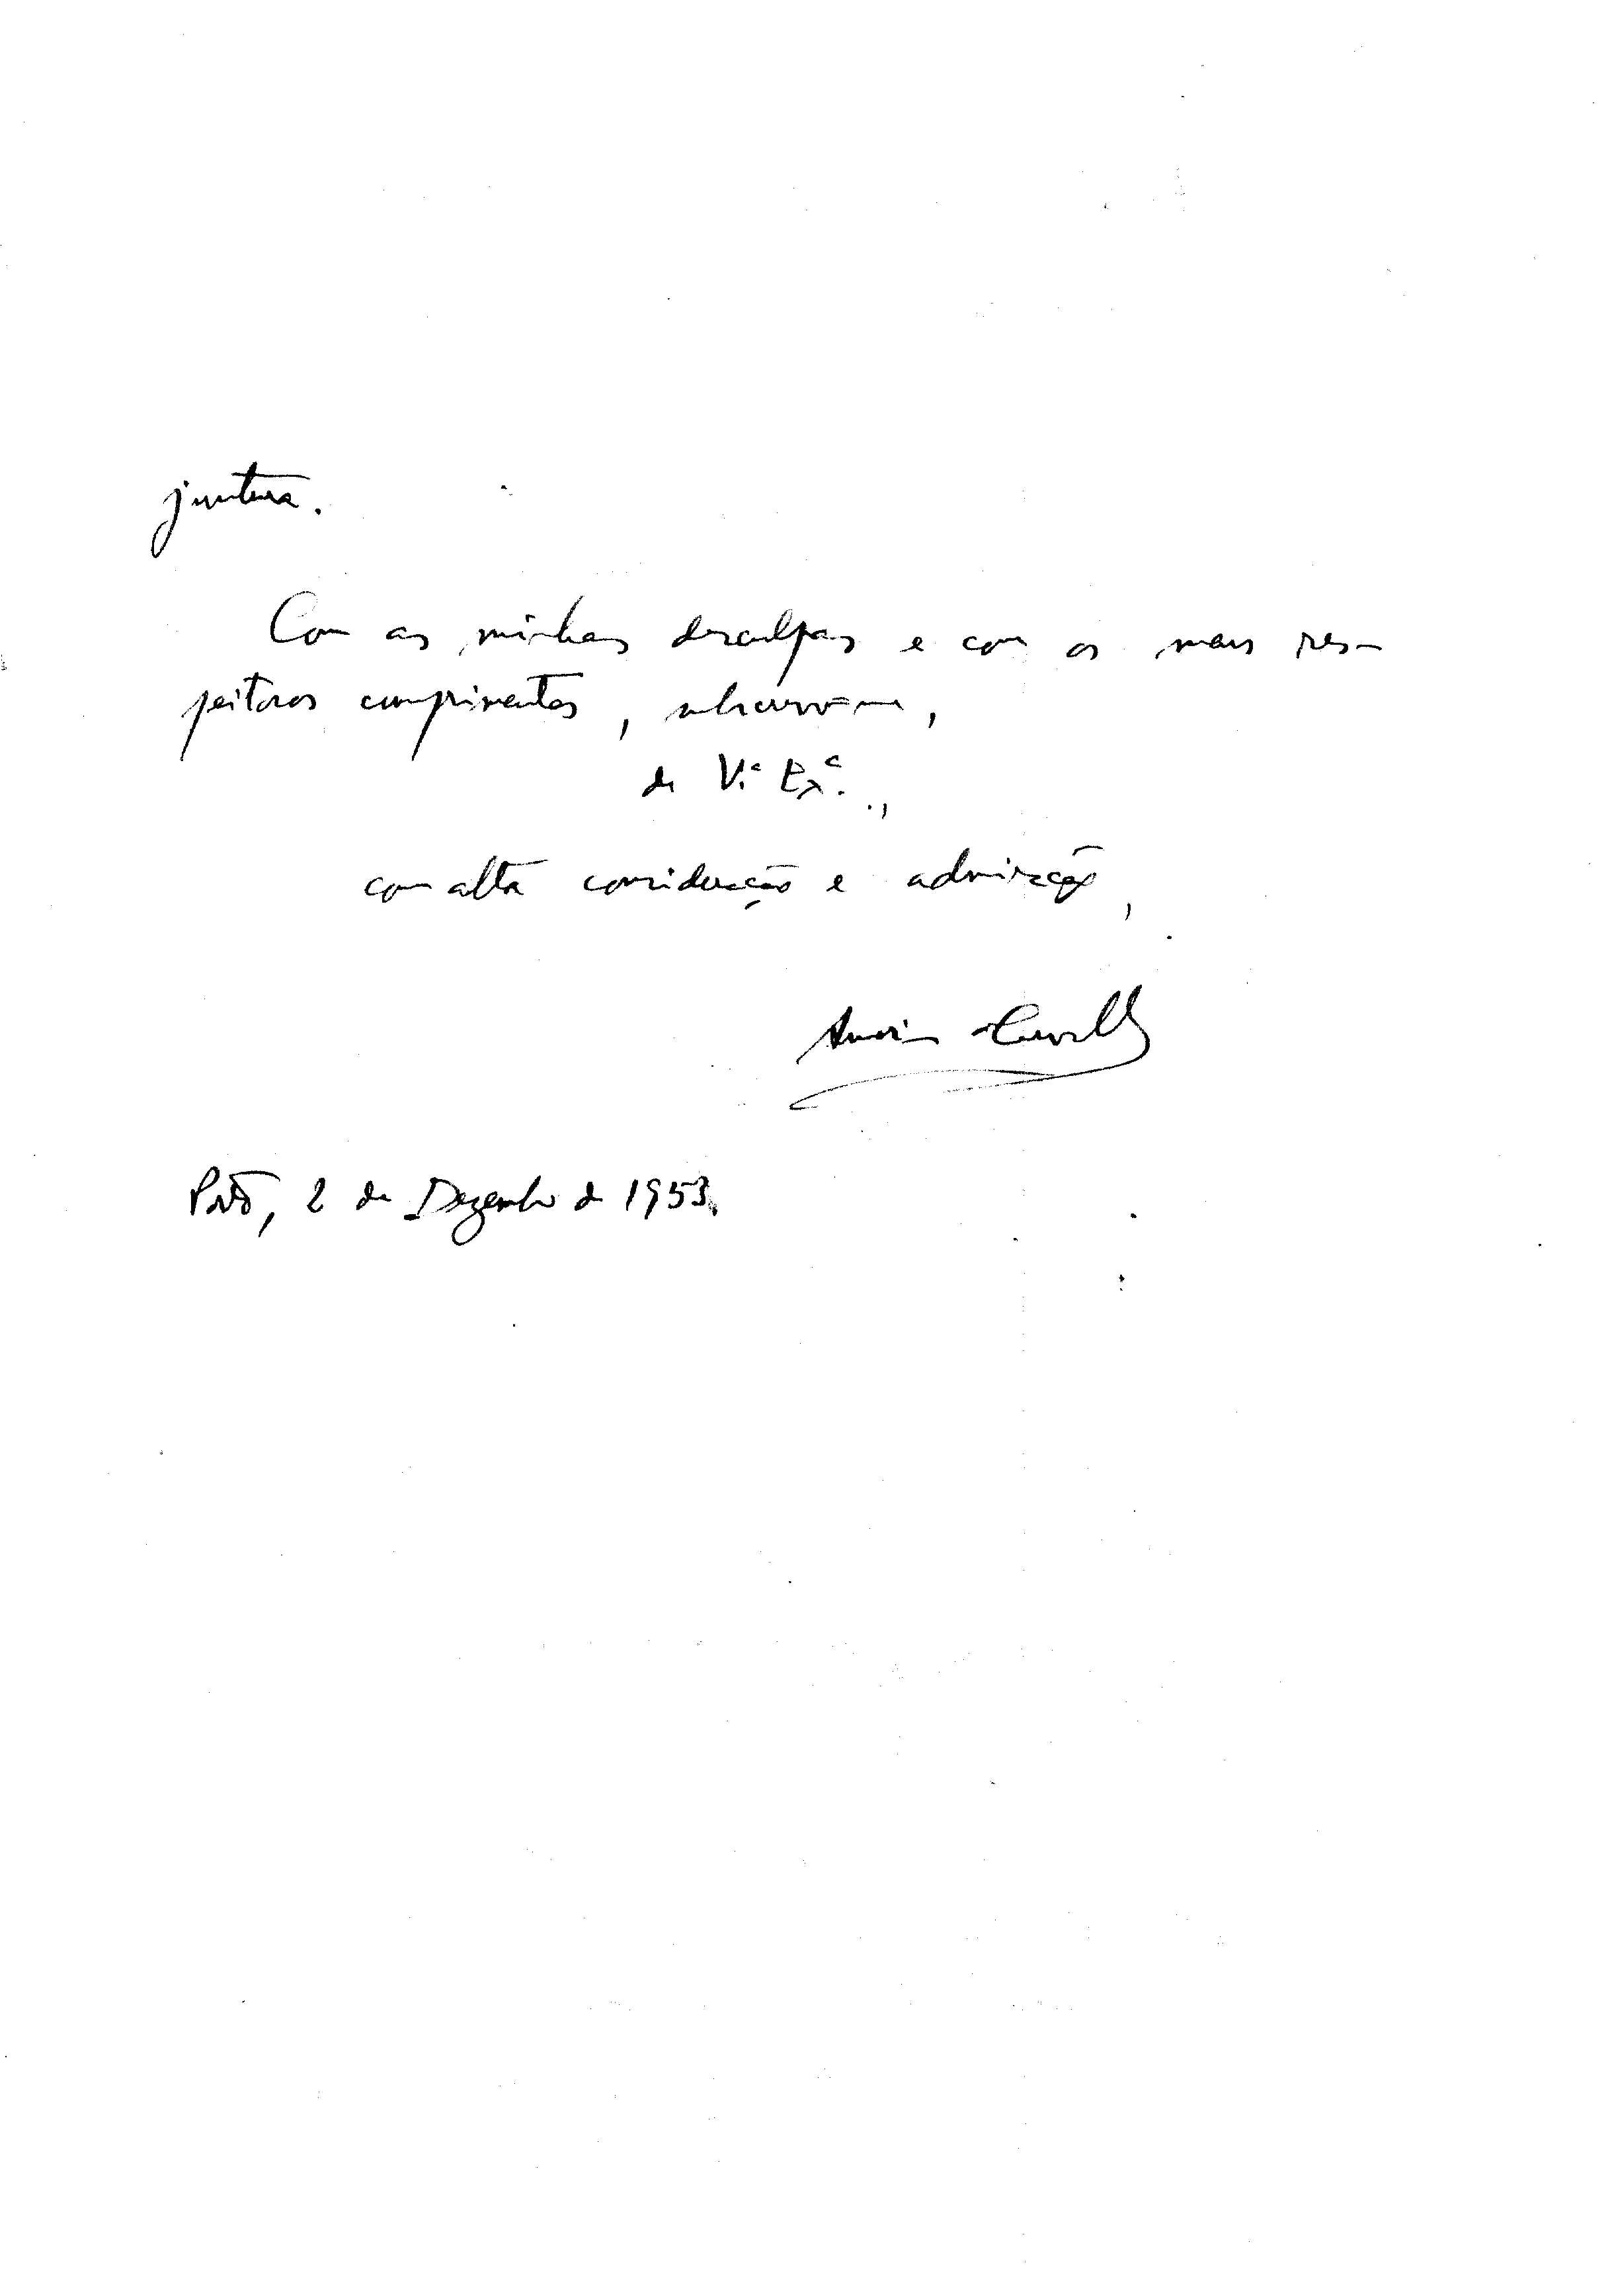 juntura.
Com as minhas desculpas e com os mais res-
peitosos cumprimentos, subscrevo-me,
de V.ª Ex.ª.,
com alta consideração e admiração,
Porto, 2 de Dezembro de 1953.